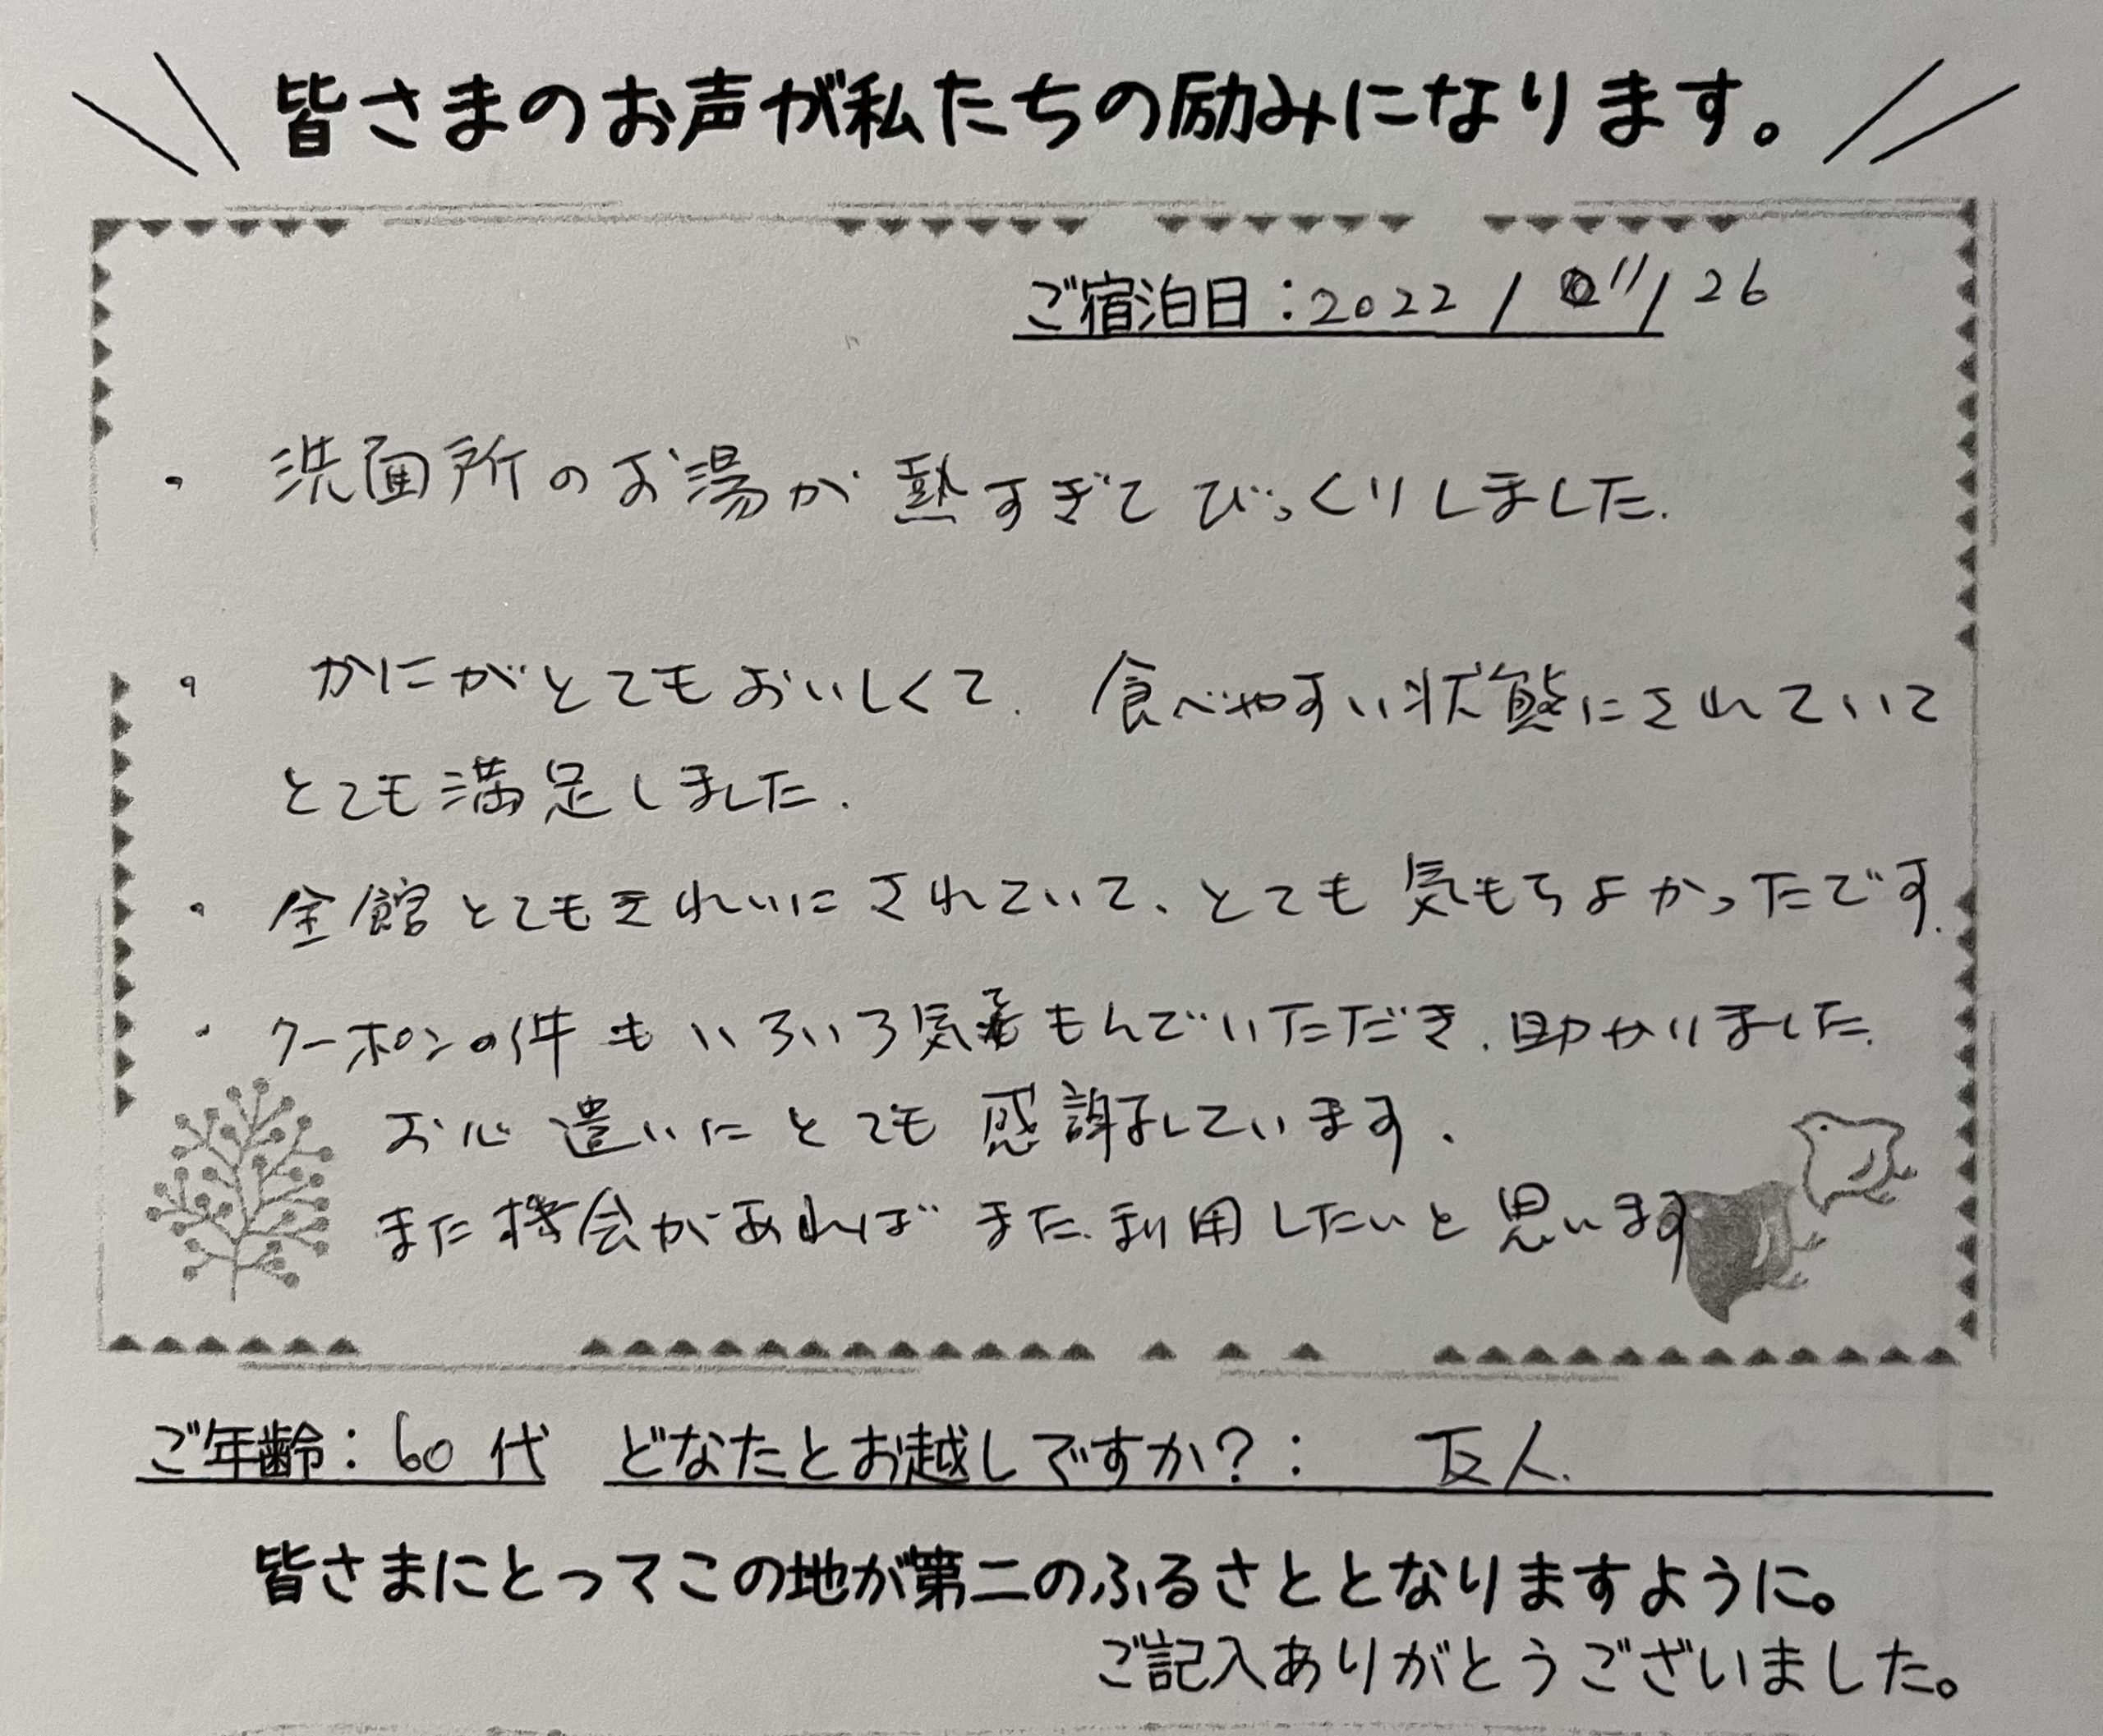 皆さまのお声が私たちの励みになります。
ご宿泊日：2022 / 11 / 26
・ 洗面所のお湯が熱すぎてびっくりしました.
・ かにがとてもおいしくて. 食べやすい状態にされていて
とても満足しました.
・ 全館とてもきれいにされていて、とても気もちよかったです.
・ クーポンの件もいろいろ気をもんでいただき. 助かりました.
お心遣いにとても感謝しています.
また機会があればまた利用したいと思います
ご年齢：60 代 どなたとお越しですか？： 友人.
皆さまにとってこの地が第二のふるさととなりますように。
ご記入ありがとうございました。